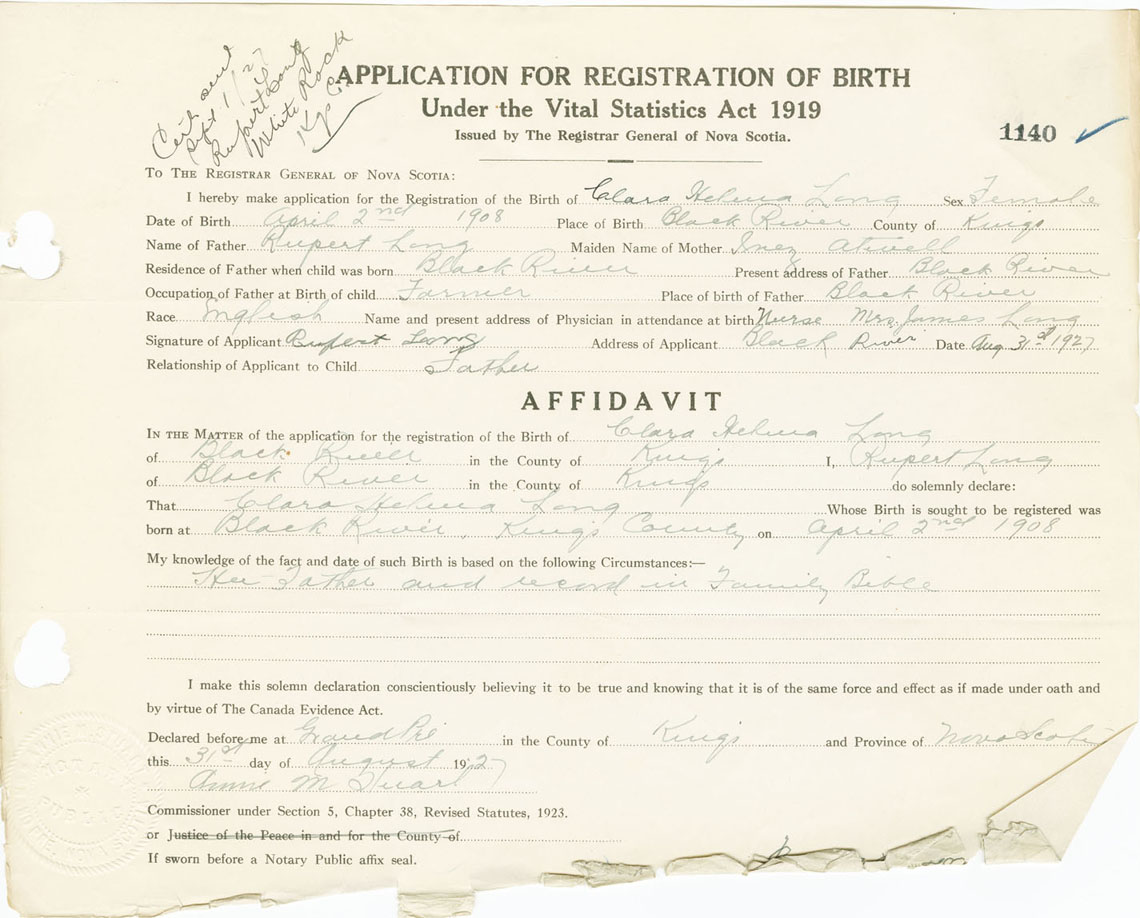 Cert sent
Sept 1/27
Rupert Long
White Rock
Kgs Co.
APPLICATION FOR REGISTRATION OF BIRTH
Under the Vital Statistics Act 1919
Issued by The Registrar General of Nova Scotia.
1140
TO THE REGISTRAR GENERAL OF NOVA SCOTIA:
I hereby make application for the Registration of the Birth of Clara Helena Long Sex Female
Date of Birth April 2nd 1908 Place of Birth Black River County of Kings
Name of Father Rupert Long Maiden Name of Mother Inez Atwell
Residence of Father when child was born Black River Present address of Father Black River
Occupation of Father at Birth of child Farmer Place of birth of Father Black River
Race English Name and present address of Physician in attendance at birth Nurse Mrs. James Long
Signature of Applicant Rupert Long Address of Applicant Black River Date Aug 31st 1927
Relationship of Applicant to Child Father
AFFIDAVIT
IN THE MATTER of the application for the registration of the Birth of Clara Helena Long
of Black River in the County of Kings I, Rupert Long
of Black River in the County of Kings do solemnly declare:
That Clara Helena Long Whose Birth is sought to be registered was
born at Black River, King's County on April 2nd 1908
My knowledge of the fact and date of such Birth is based on the following Circumstances:—
Her Father and record in Family Bible
I make this solemn declaration conscientiously believing it to be true and knowing that it is of the same force and effect as if made under oath and
by virtue of The Canada Evidence Act.
Declared before me at Grand Pré in the County of Kings and Province of Nova Scotia
this 31st day of August 1927
Annie M Stuart
Commissioner under Section 5, Chapter 38, Revised Statutes, 1923.
or Justice of the Peace in and for the County of
If sworn before a Notary Public affix seal.